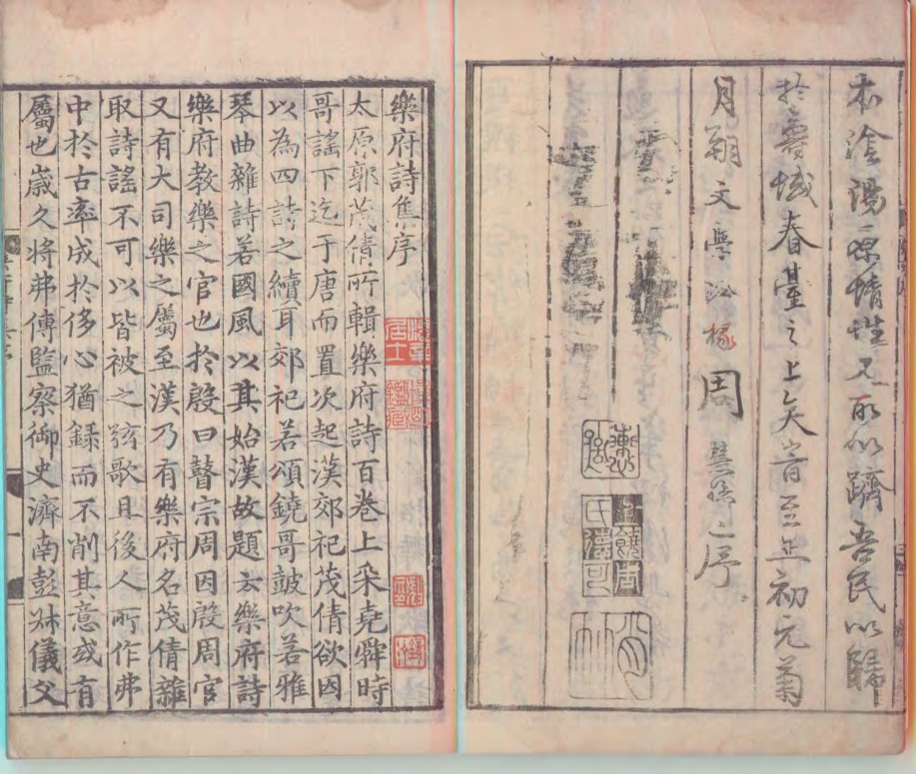 本陰陽之情性又所以躋吾民以歸
於壽域春臺之上矣旹至正初元菊
月朔文學掾周慧孫序
樂府詩集序
太原郭茂倩所輯樂府詩百卷上采堯舜時
哥謠下迄于唐而置次起漢郊祀茂倩欲因
以為四詩之續耳郊祀若頌鐃哥皷吹若雅
琴曲雜詩若國風以其始漢故題云樂府詩
樂府教樂之官也於殷曰瞽宗周因殷周官
又有大司樂之屬至漢乃有樂府名茂倩雜
取詩謠不可以皆被之弦歌且後人所作弗
中於古率成於侈心猶録而不削其意或有
屬也嵗久將弗傳監察御史濟南彭叔儀父